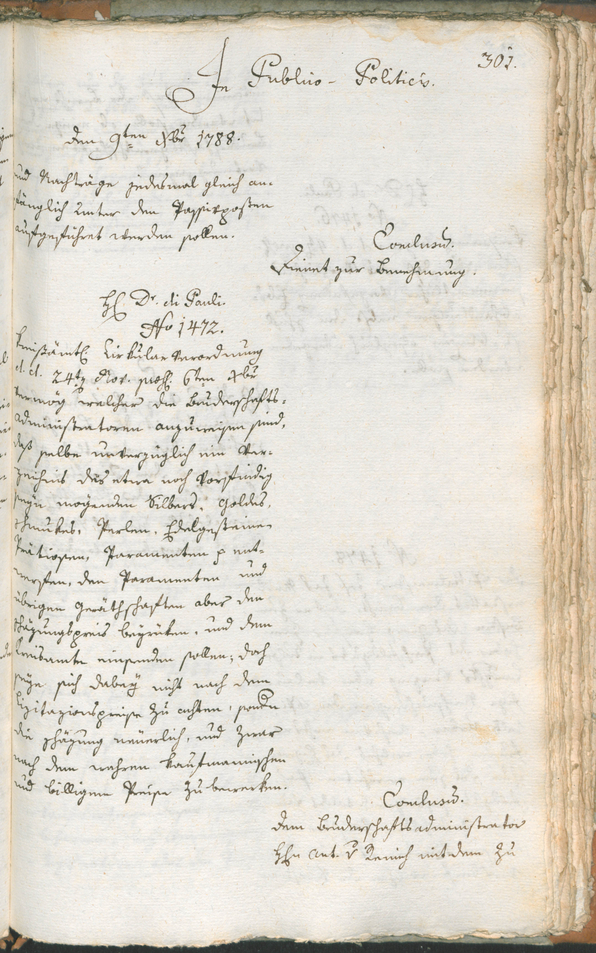 301.
In Publico-Politicis.
Den 9ten Xbr 1788.
und Nachträge jedesmal gleich an-
fänglich unter den Passivposten
aufgeführet werden sollen.
Conclusum.
Dienet zur Benehmung.
H. Dr. di Pauli.
No 1472.
Kreisämtl. Cirkularverordnung
d. d. 24ten Nov. präs. 6ten Xbr
vermög welcher die Bruderschafts-
administratoren anzuweisen sind,
daß selbe unverzüglich ein Ver-
zeichnis des etwa noch vorfindig
seyn mögenden Silbers, Goldes,
Schmukes, Perlen, Edelgesteinen
Prätiosen, Paramenten p ent-
werfen, den Paramenten und
übrigen Geräthschaften aber den
Schäzungspreis beyrüken, und dem
Kreisamte einsenden sollen; doch
seye sich dabey nicht nach dem
Lizitazionspreise zu achten, sondern
die Schäzung neuerlich, und zwar
nach dem wahren kaufmannischen
und billigem Preise zu bewerken.
Conclusum.
Dem Bruderschaftsadministrator
Hrn Ant. v Remich mit dem zu